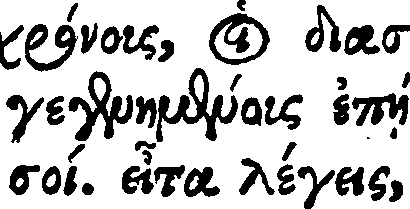 χρόνοις, ὁ διασ
γεγενημένοις ἐπή
σοί. εἶτα λέγεις,